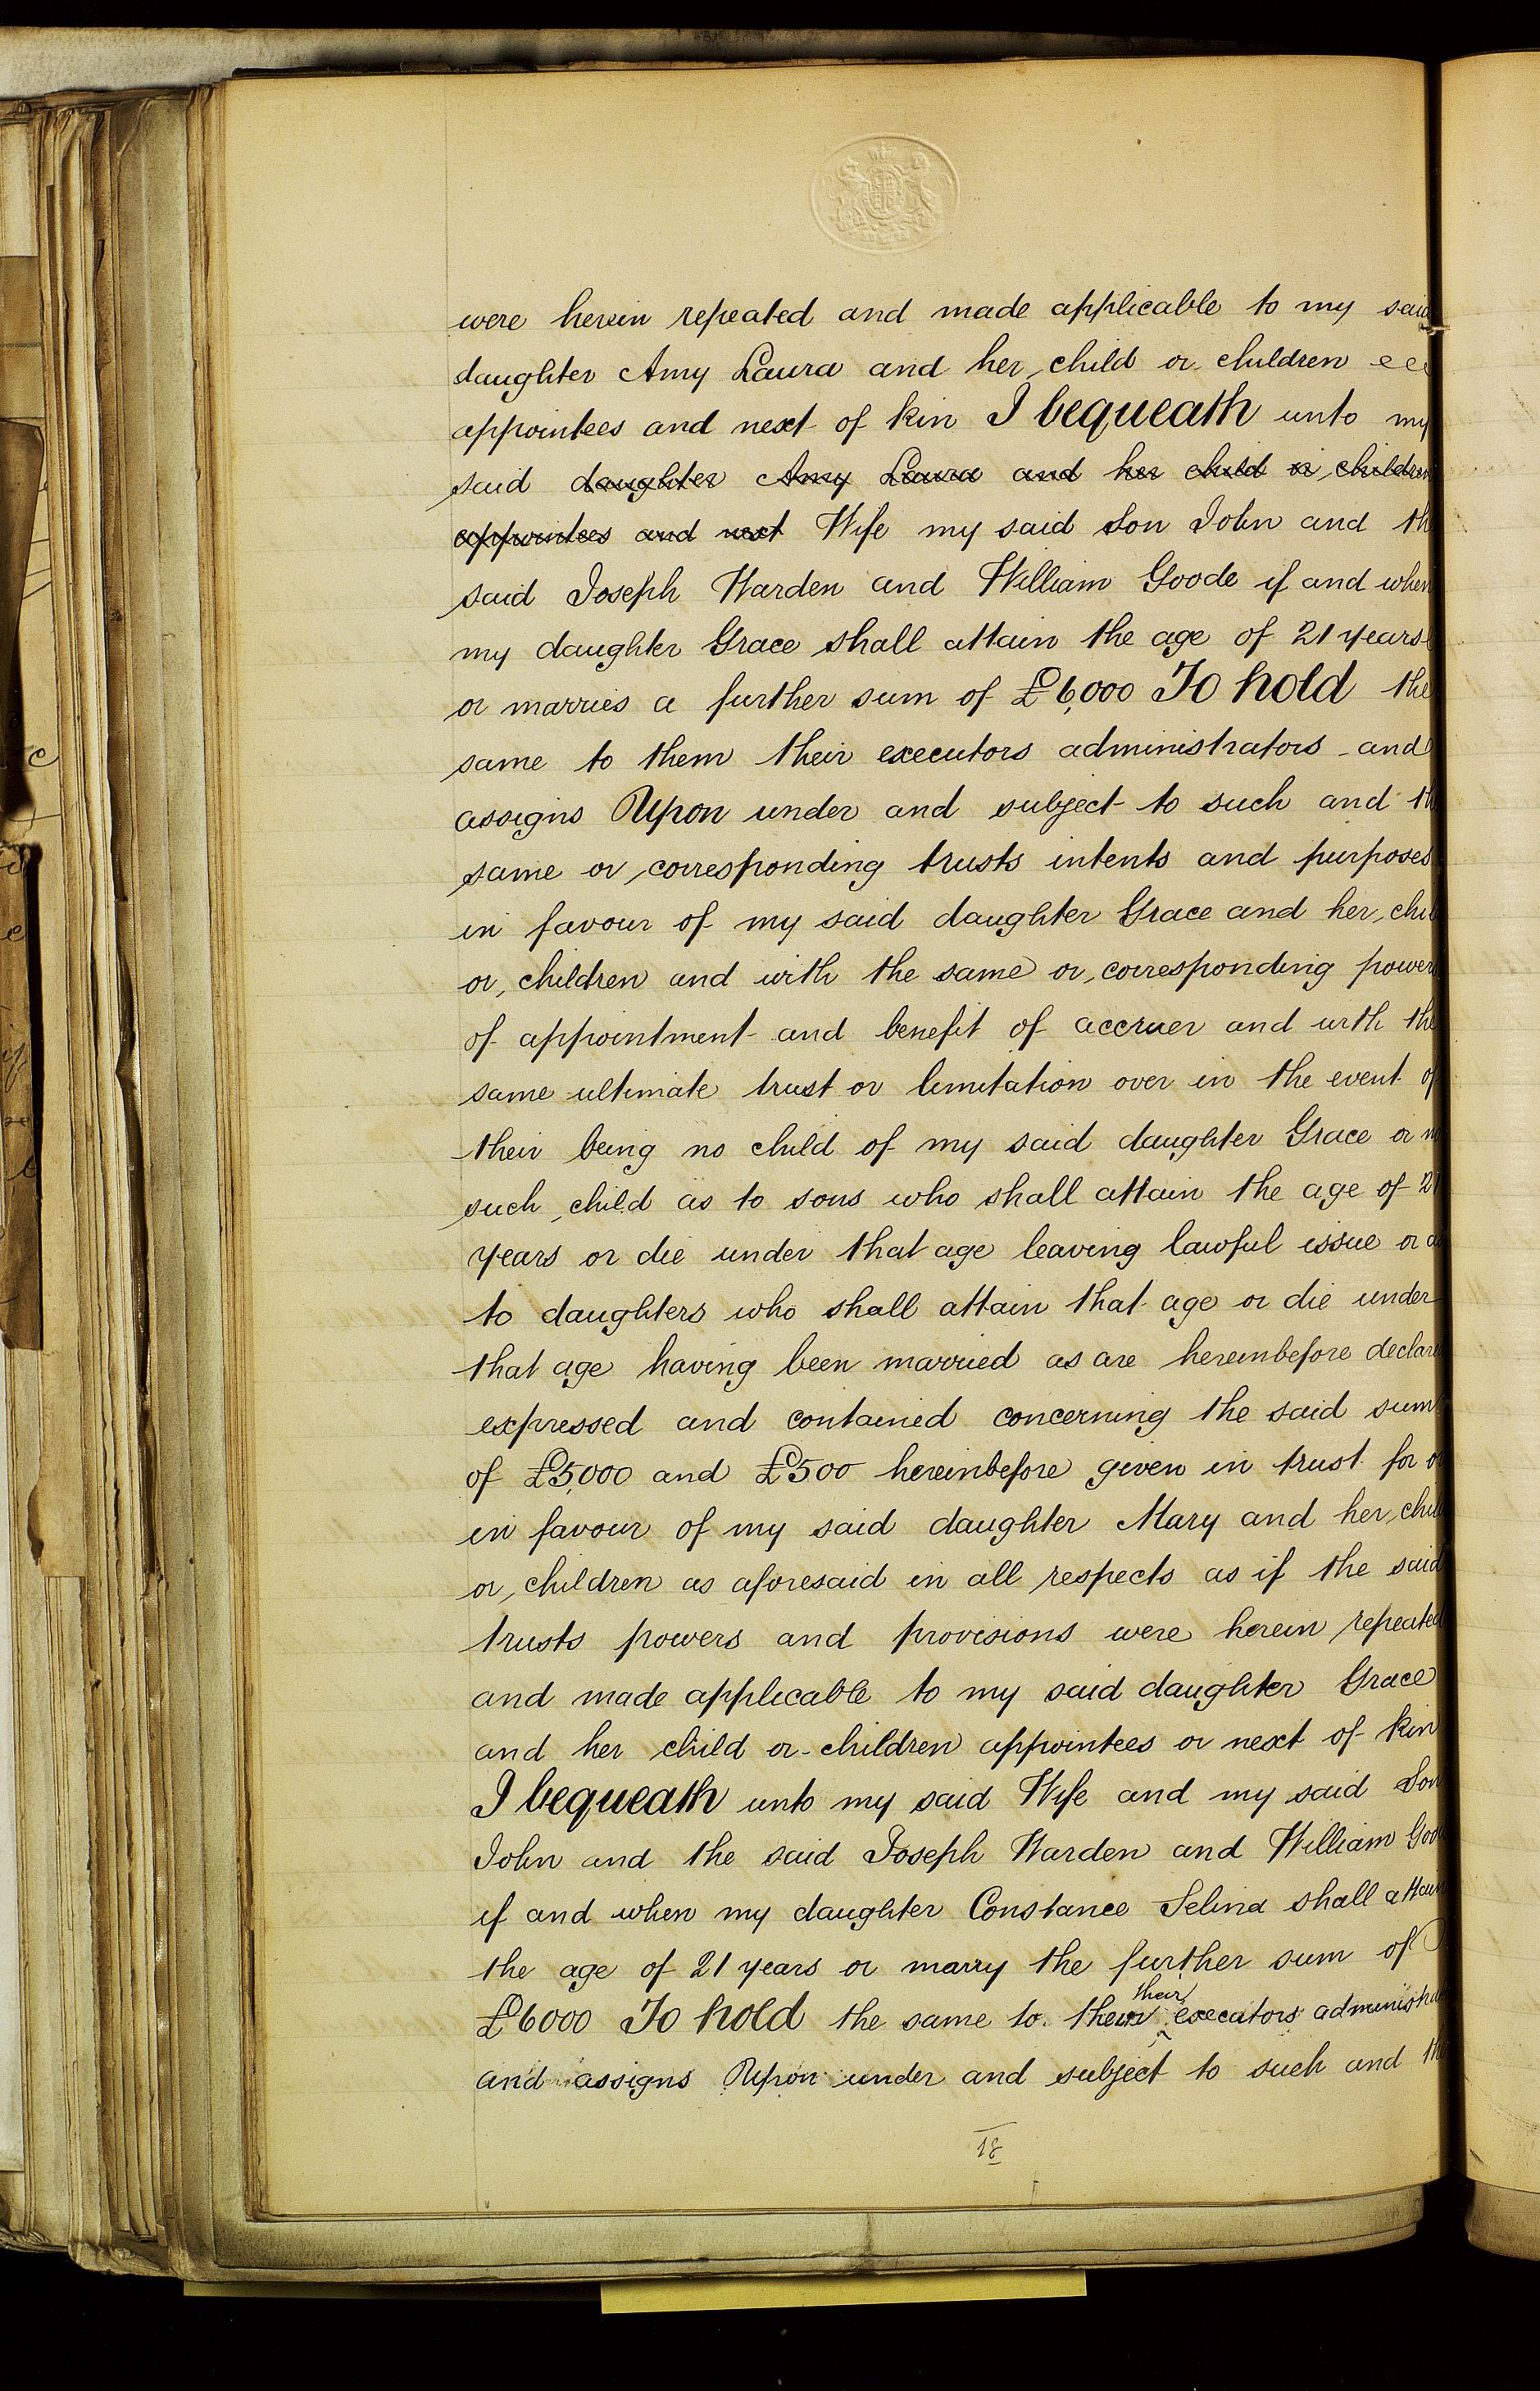 were herein repeated and made applicable to my said
daughter Amy Laura and her child or children
appointees and next of kin I bequeath unto my
said daughter Amy Laura and her child or children
appointees and next Wife my said Son John and th
said Joseph Warden and William Goode if and when
my daughter Grace shall attain the age of 21 years
or marries a further sum of £6,000 To hold the
same to them their executors administrators and
assigns Upon under and subject to such and th
same or corresponding trusts intents and purposes
in favour of my said daughter Grace and her chil
or children and with the same or corresponding power
of appointment and benefit of accruer and with the
same ultimate trust or limitation over in the event of
their being no child of my said daughter Grace or n
such child as to sons who shall attain the age of 21
years or die under that age leaving lawful issue or a
to daughters who shall attain that age or die under
that age having been married as are hereinbefore declared
expressed and contained concerning the said sum
of £5,000 and £500 hereinbefore given in trust for o
in favour of my said daughter Mary and her chil
or children as aforesaid in all respects as if the said
trusts powers and provisions were herein repeated
and made applicable to my said daughter Grace
and her child or children appointees or next of kin
I bequeath unto my said Wife and my said Son
John and the said Joseph Warden and William Good
if and when my daughter Constance Selina shall attain
the age of 21 years or marry the further sum of
£6000 To hold the same to them their executors administra
and assigns Upon under and subject to such and th
18